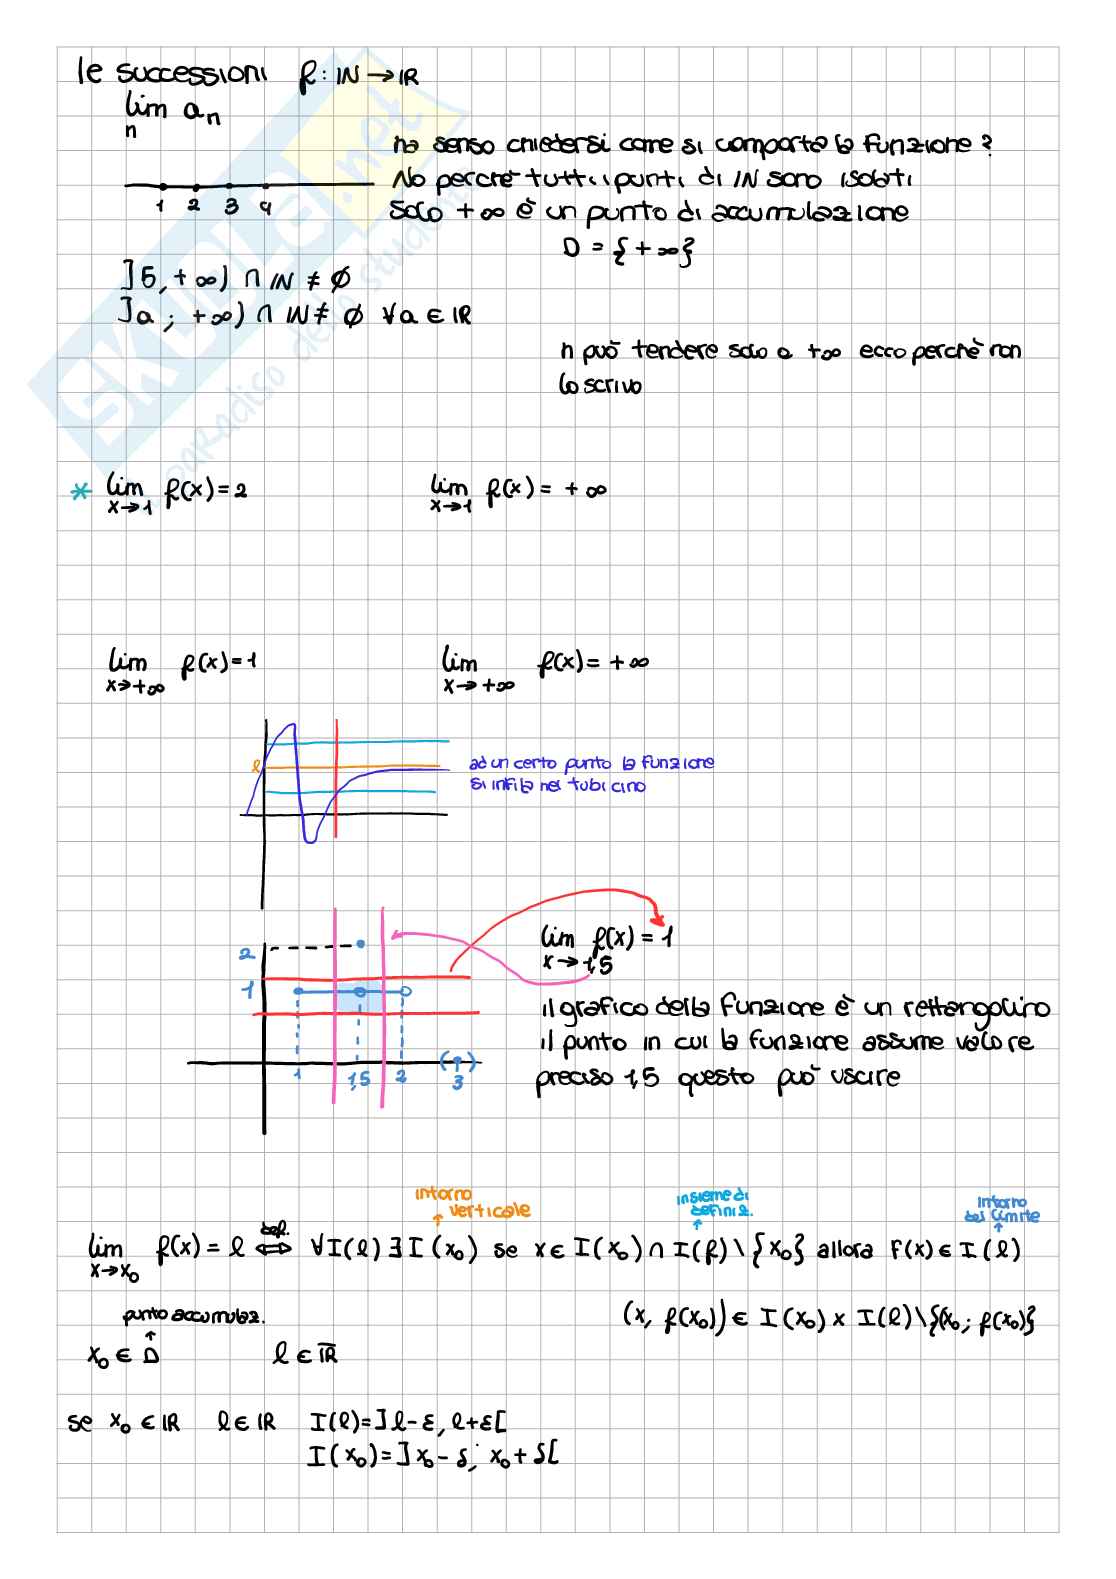 le successioni f: IN → IR
lim aₙ
n
ha senso chiedersi come si comporta la funzione?
No perchè tutti i punti di IN sono isolati
solo +∞ è un punto di accumulazione
1 2 3 4
D = {+∞}
]5, +∞) ∩ IN ≠ ∅
]a; +∞) ∩ IN ≠ ∅ ∀a ∈ IR
n può tendere solo a +∞ ecco perchè non
lo scrivo
* lim f(x)=2 lim f(x)= +∞
x→1 x→1
lim f(x)=1 lim f(x)= +∞
x→+∞ x→+∞
l
ad un certo punto la funzione
si infila nel tubicino
2
1
lim f(x) = 1
x→1,5
il grafico della funzione è un rettangolino
il punto in cui la funzione assume valore
preciso 1,5 questo può uscire
1 1,5 2 3
intorno
verticale
insieme di
definiz.
intorno
del limite
lim f(x) = l def. ⟺ ∀I(l) ∃ I(x₀) se x ∈ I(x₀) ∩ I(f) \ {x₀} allora f(x) ∈ I(l)
x→x₀
punto accumulaz.
(x, f(x₀)) ∈ I(x₀) x I(l) \ {(x₀; f(x₀)}
x₀ ∈ D l ∈ IR̅
se x₀ ∈ IR l ∈ IR I(l)=]l-ε, l+ε[
I(x₀)=]x₀-δ; x₀+δ[
SKUOLA.net
paradiso dello studente